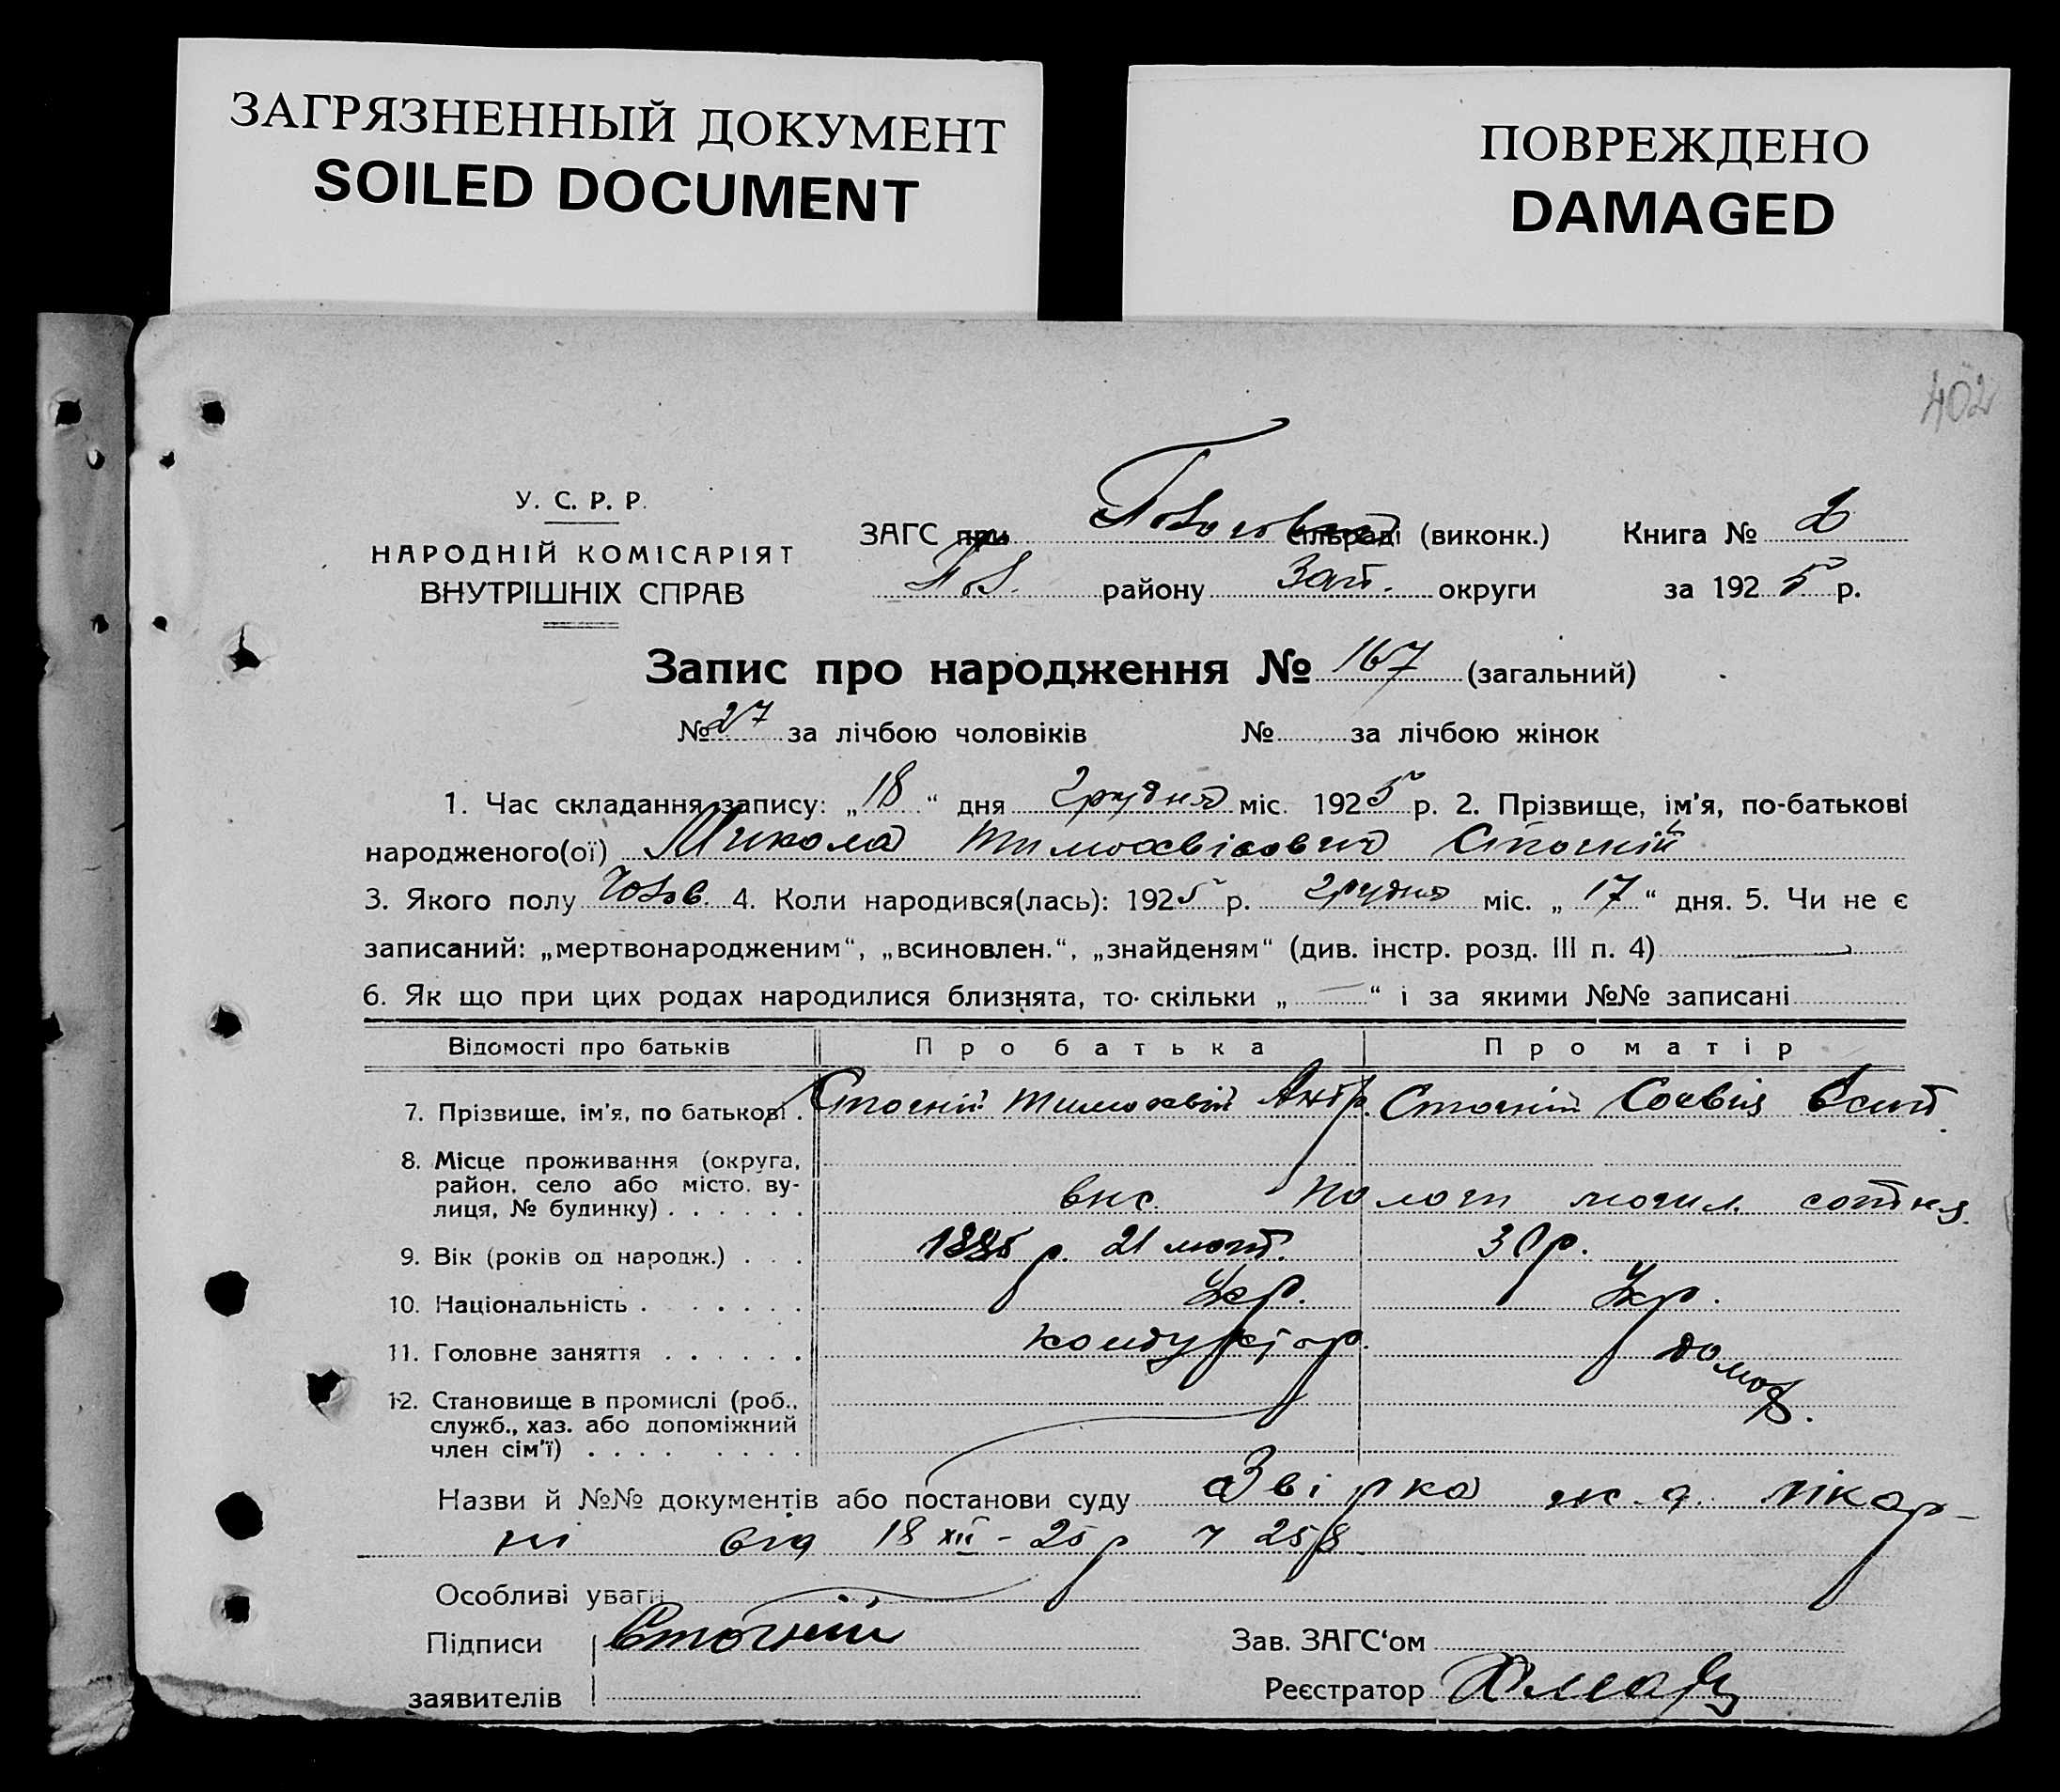 ЗАГРЯЗНЕННЫЙ ДОКУМЕНТ
SOILED DOCUMENT
ПОВРЕЖДЕНО
DAMAGED
402
У. С. Р. Р.
НАРОДНІЙ КОМІСАРІЯТ
ВНУТРІШНІХ СПРАВ
ЗАГС при сільраді (виконк.) Книга № 2
Пол. району Зап. округи за 1925 р.
Запис про народження № 167 (загальний)
№ 27 за лічбою чоловіків № за лічбою жінок
1. Час складання запису: „18“ дня грудня міс. 1925 р. 2. Прізвище, ім'я, по-батькові
народженого(ої) Микола Тимохвієвич Стогній
3. Якого полу чолов. 4. Коли народився(лась): 1925 р. грудня міс. „17“ дня. 5. Чи не є
записаний: „мертвонародженим“, „всиновлен.“, „знайденям“ (див. інстр. розд. III п. 4)
6. Як що при цих родах народилися близнята, то скільки „—“ і за якими №№ записані
Відомості про батьків Про батька Про матір
7. Прізвище, ім'я, по батькові Стогній Тимохвій Стогній Сохвія
8. Місце проживання (округа,
район, село або місто, ву-
лиця, № будинку) Пологи могил.
9. Вік (років од народж.) р. 21 лют. 30 р.
10. Національність Укр. Укр.
11. Головне заняття кондуктор. домов.
12. Становище в промислі (роб.,
служб., хаз. або допоміжний
член сім'ї)
Назви й №№ документів або постанови суду Звірка ж. д. лікар-
ні від 18 XII - 25 р ч 258
Особливі уваги
Підписи Стогній Зав. ЗАГС'ом
заявителів Реєстратор